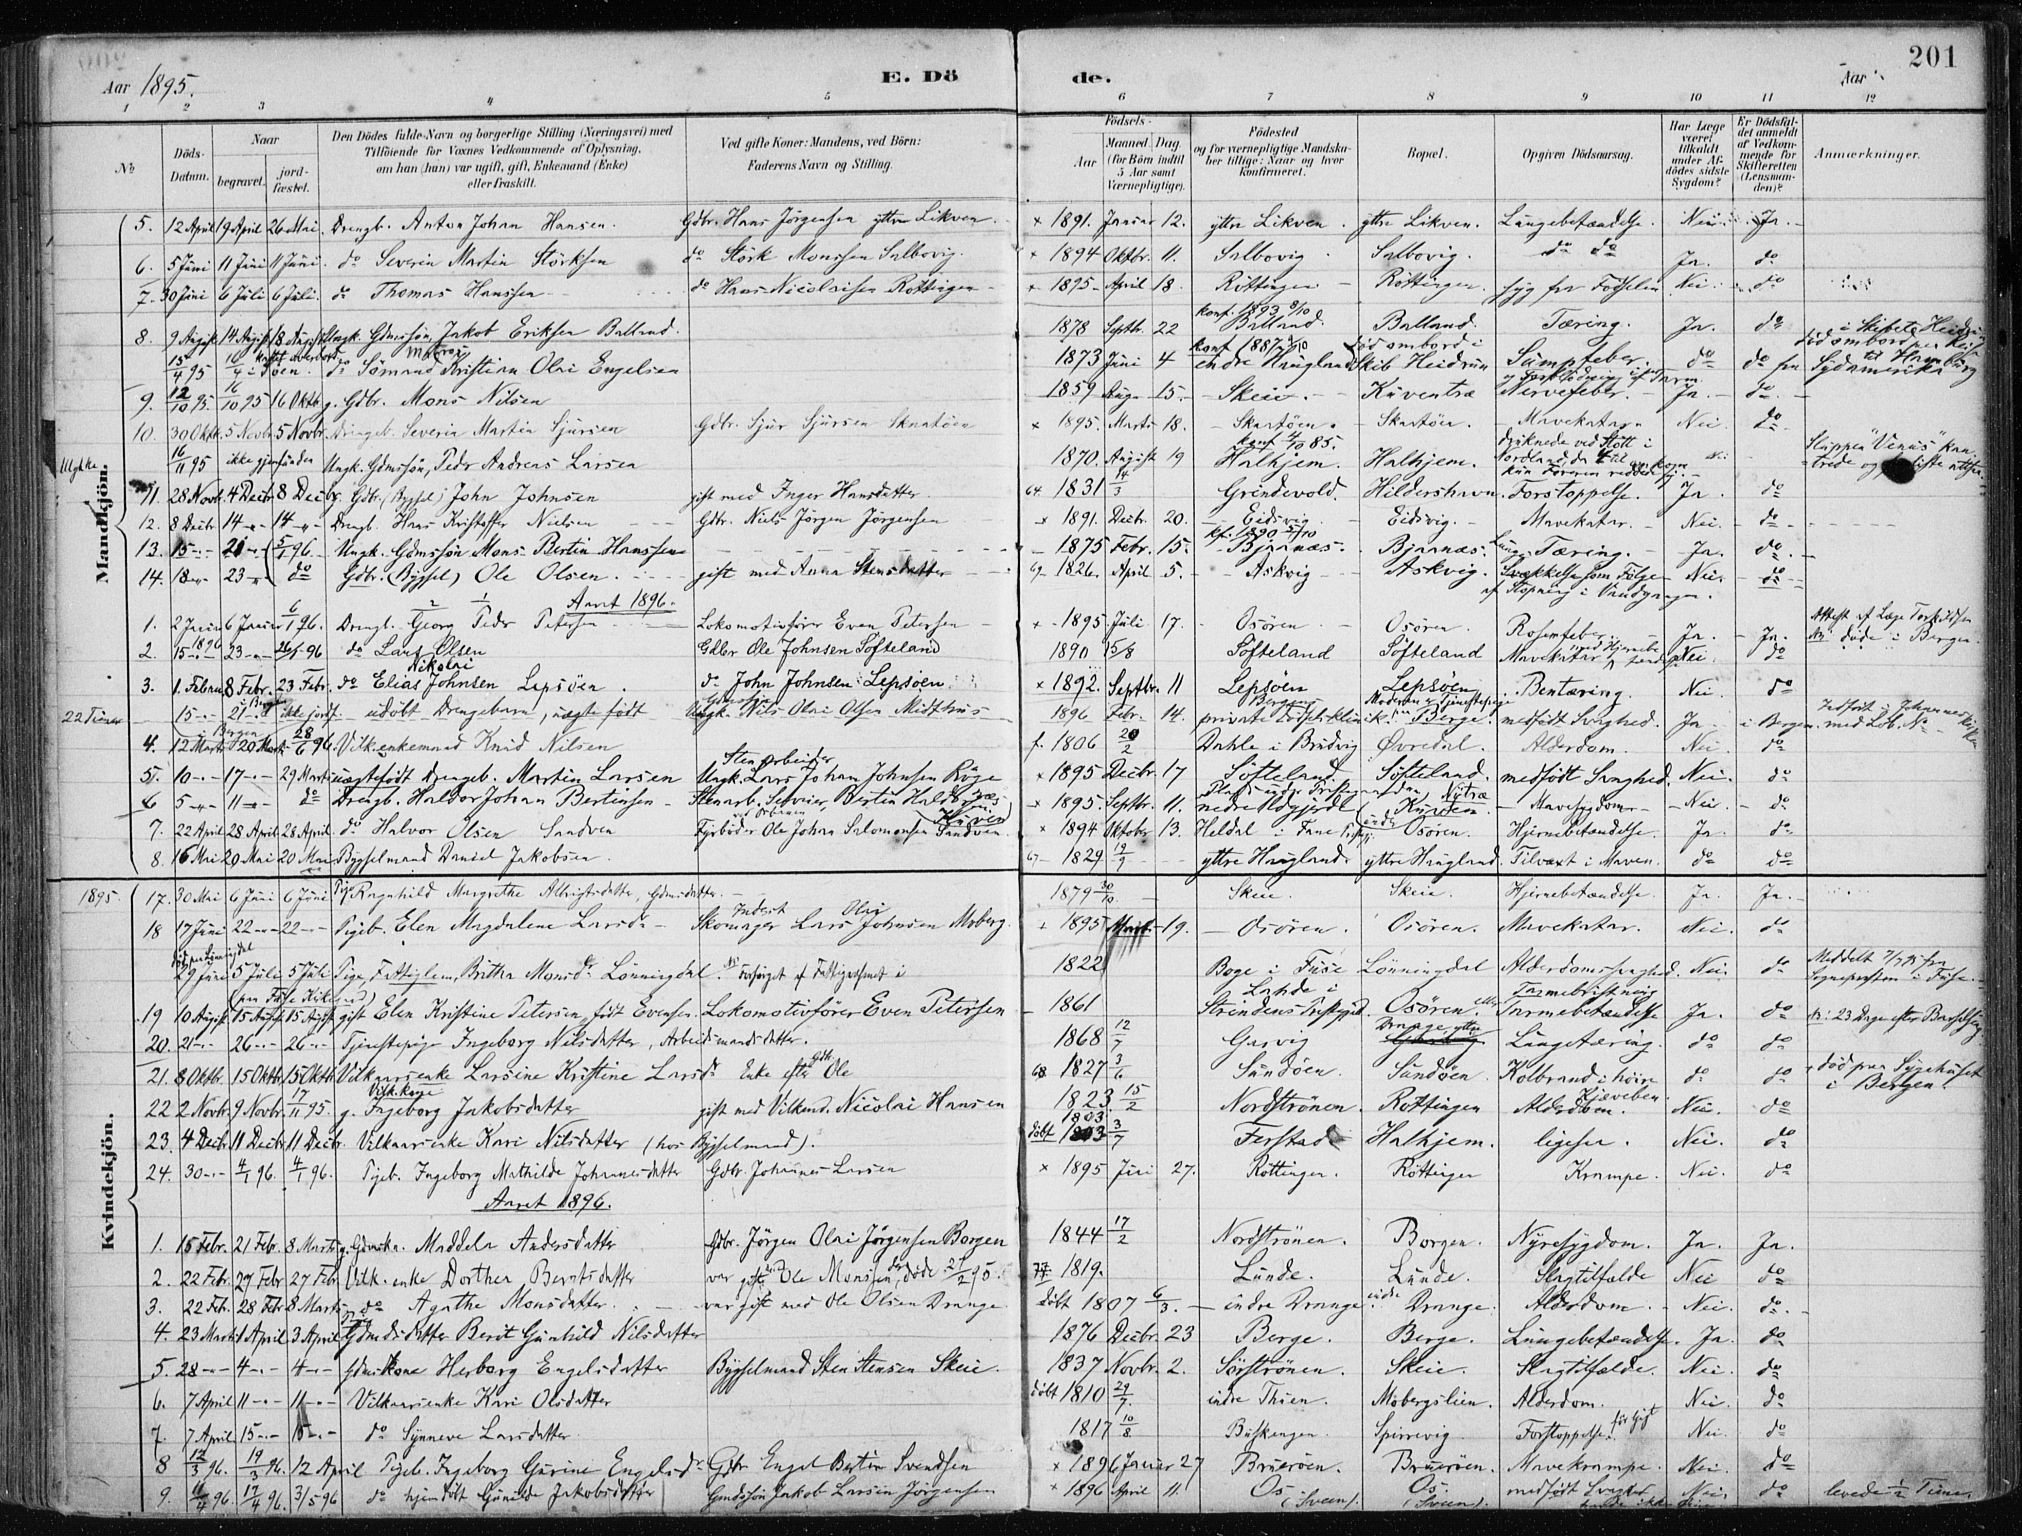 201
Aar 1895. E. Dö de. Aar
1 2 3 4 5 6 7 8 9 10 11 12
№ Döds-Datum. Naar begravet. jord-fæstet. Den Dödes fulde Navn og borgerlige Stilling (Næringsvei) med Tilföiende for Voxnes Vedkommende af Oplysning, om han (hun) var ugift, gift, Enkemand (Enke) eller fraskilt. Ved gifte Koner: Mandens, ved Börn: Faderens Navn og Stilling. Födsels- Aar Maaned (for Börn indtil 5 Aar samt Værnepligtige). Dag Födested og for værnepligtige Mandskaber tillige: Naar og hvor konfirmeret. Bopæl. Opgiven Dödsaarsag. Har Læge været tilkaldt under Afdödes sidste Sygdom? Er Dödsfaldet anmeldt af Vedkommende for Skifteretten (Lensmanden)? Anmærkninger.
Mandkjön.
5. 12 April 19 April 26 Mai. Drengb. Anton Johan Hansen. Gdbr. Hans Jörgensen yttre Likven. × 1891. Januar 12. yttre Likven. yttre Likven. Lungebetændelse. Nei. Ja.
6. 5 Juni 11 Juni 11 Juni. do Severin Martin Störksen do Störk Monssen Salbovig. × 1894 Oktbr. 11. Salbovig. Salbovig. do do Ja. do
7. 30 Juni 6 Juli 6 Juli. do Thomas Hanssen do Hans Nicolaisen Röttingen × 1895 April 18. Röttingen Röttingen. syg fra Födselen Nei. do
8. 9 August 14 August 18 August Ungk. Gdmssön Jakob Eriksen Balland. 1878 Septbr. 22 konf. 1893 8/10 Balland. Balland. Tæring. Ja. do
15/4 95 16/4 i Söen. kastet overbord do Sömand Matros Kristian Olai Engelsen 1873 Juni 4 konf 1887 indre Haugland död ombord i Skib Heidrun Sumpfeber. do do
9. 12/10 95. 16/10 95 16 Oktb. g. Gdbr. Mons Nilsen 1859 Aug. 15. Skeie. Kuventræ Nervefeber. Ja. do
10. 30 Oktbr. 5 Novbr. 5 Novbr. Drengeb. Severin Martin Sjursen Gdbr. Sjur Sjursen Skaatöen × 1895. Marts 18. Skaatöen. Skaatöen. Mavekatar. Nei do
16/11 95 ikke gjenfunden Ungk. Gdmssön, Peder Andreas Larsen 1870. August 19 konf 4/10 85. Halhjem. Halhjem. druknede ved Stött i Nordland
11. 28 Novbr. 4 Decbr. 8 Decbr. g. Gdbr. (Bygsel) John Johnsen gift med Inger Hansdatter. 64 1831 14/3 Grindevold. Hildershavn. Forstoppelse. Ja. do
12. 8 Decbr 14 -"- 14 -"- Drengb. Hans Kristoffer Nielsen Gdbr. Niels Jörgen Jörgensen × 1891. Decbr. 20. Eidsvig. Eidsvig. Mavekatar. Nei. do
13. 15 -"- 21 -"- 5/1 96. Ungk. Gdmssön Mons Bertin Hanssen 1875 Febr. 15. kf. 1890 5/10 Bjaanæs. Bjaanæs. Lunge Tæring. Ja. do
14. 18 -"- 23 -"- do Gdbr. (Bygsel) Ole Olsen. gift med Anna Stensdatter 69 1826. April 5. Askvig Askvig. Svækkelse som Fölge af Stopning i Vandgangen. Nei. do
Aaret 1896.
1. 2 Januar 1896 6 Januar 6/1 96. Drengb. Georg Peder Petersen Lokomotivförer Even Petersen × 1895. Juli 17. Osören. Osören. Rosenfeber. Ja. Ja. Attest af Læge
2. 15 -"- 23 -"- 26/1 96 do Lars Olsen Gdbr Ole Johnsen Söfteland 1890 15/8 Söfteland Söfteland Mavekatar Nei. do
3. 1. Februar 8 Febr. 23 Febr. do Elias Nikolai Johnsen Lepsöen. do John Johnsen Lepsöen. × 1892. Septbr. 11 Lepsöen Lepsöen Bentæring. Nei. do
15 -"- i Bergen 21 -"- ikke jordf. udöbt Drengebarn, uægte födt Ungk. Nils Olai Olsen Midthus 1896 Febr. 14. Bergens private Födselsklinik. Berge. medfödt Svaghed. Ja i Bergen
4. 12 Marts 20 Marts 28/6 96. Vilk.enkemand Knud Nilsen f. 1806 20/2 Dahle i Brudvig Övredal. Alderdom. Nei. do
5. 10 -"- 17 -"- 29 Marts uægtefödt Drengeb. Martin Larsen Stenarbeider Ungk. Lars Johan Johnsen Röge × 1895 Decbr. 17 Söfteland. Söfteland. medfödt Svaghed. Nei. do
6 5 -"- 11 -"- do Drengb. Haldor Johan Bertinsen Stenarb. Bertin Haldorsen × 1895. Septbr. 11. Kuven Mavesygdom. Nei. do.
7. 22 April 28 April 28 April. do Halvor Olsen Sandven Fyrböder Ole Johan Salomonsen Sandven × 1894 Oktober 13. Heldal i Fane Osören. Hjernebetændelse. Ja. do
8. 16 Mai 20 Mai 20 Mai Bygselmand Daniel Jakobsen. 67 1829 19/9 yttre Haugland. yttre Haugland. Tilvæxt i Maven. do do
Kvindekjön.
1895 17. 30 Mai 6 Juni 6 Juni Pige Ragnhild Margrethe Albrigtsdatter, Gdmsdatter. 1879 30/10 Skeie. Skeie. Hjernebetændelse. Ja. Ja.
18 17 Juni 22 -"- 22 -"- Pigeb. Elen Magdalene Larsdr Inderst Skomager Lars Olai Johnsen Moberg. × 1895 Marts 19. Osören. Osören. Mavekatar. Nei. do
29 Juni 5 Juli 5 Juli Pige, Fattiglem, Britha Monsdr Lönningdal. Forsörget af Fattigvæsnet i 1822 Boge i Fuse Lönningdal Alderdomssvaghed. Nei. do Meddelt fra Sognepresten i Fuse
19 10 August 15 August 15 August gift Elen Kristine Petersen, födt Evensen. Lokomotivförer Even Petersen 1861 Lahde i Strindens Prestegjd. Osören. Tarmebristning eller Tarmebetændelse Ja. do
20. 21 -"- 26 -"- 26 -"- Tjenestepige Ingeborg Nilsdatter, Arbeidsmandsdatter. 1868 12/7 Gasvig Lungetæring. do do
21. 8 Oktbr. 15 Oktbr. 15 Oktbr. Vilkaarsenke Larsine Kristine Larsdr Enke efter Gdb. Ole 68 1827 3/6 Sundöen. Sundöen. Kolbrand i höire Kjæveben. do do död paa Sygehuset i Bergen.
22 2 Novbr. 9 Novbr. 17/11 95. g. Vilk.kone Ingeborg Jakobsdatter gift med Vilkmd. Nicolai Hansen 1823. 15/2 Nordströnen. Röttingen Alderdom. Nei. do
23. 4 Decbr. 11 Decbr. 11 Decbr. Vilkaarsenke Kari Nilsdatter (hos Bygselmand). döbt 1803 3/7 Ferstad Halhjem. ligesaa. Nei. do
24. 30 -"- 4/1 96. 4/1 96. Pigeb. Ingeborg Mathilde Johannesdatter Gdbr. Johannes Larsen × 1895 Juni 27. Röttingen. Röttingen Krampe. Nei. do
Aaret 1896.
1. 15 Febr. 21 Febr. 8 Marts g. Gdmsk. Maddela Andersdatter Gdbr. Jörgen Olai Jörgensen Borgen 1844 17/2 Nordströnen. Borgen. Nyresygdom. Ja. Ja.
2. 22 Febr. 27 Febr 27 Febr. Vilk.enke Dorthea Berntsdatter var gift m. Ole Monssen, döde 27/2 95. 77 1819. Lunde. Lunde. Slagtilfælde Nei do
3. 22 Feb. 28 Febr 8 Marts do Agathe Monsdatter. var gift med Ole Olsen Drange. döbt 1807 6/3. indre Drange indre Drange. Alderdom. Nei. do.
4. 23 Marts 1 April 3 April Gdmdsdatter Berit Gunhild Nilsdatter 1876 Decbr. 23 Berge. Berge. Lungebetændelse. Ja. do
5. 28 -"- 4 -"- 4 -"- Gdmskone Herborg Engelsdatter Bygselmand Sten Stensen Skeie. 1837 Novbr. 2. Sörströnen. Skeie. Slagtilfælde. Nei. do
6. 7 April 11 -"- 11 -"- Vilkaarsenke Kari Olsdatter döbt 1810 29/7. indre Thuen. Mobergslien. Alderdom. Nei. do
7. 7 April 15 -"- 15 -"- do Synneve Larsdatter. 1817 10/8 Buskengen. Spirrevig. Forstoppelse. Nei. do
8 12/3 96. 19/3 96. 12 April Pigeb. Ingeborg Gurine Engelsdr Gdbr Engel Bertin Svendsen × 1896 Januar 27 Bruaröen. Bruaröen. Mavekrampe. Nei. do
9. 11/4 96. 17/4 96. 3/5 96 do hjemdöbt Gunilde Jakobsdatter Gmdssön Jakob Larsen Jörgensen × 1896 April 11. Os (Sveen). Os (Sveen). medfödt Svaghed Nei. do levede ½ Time.